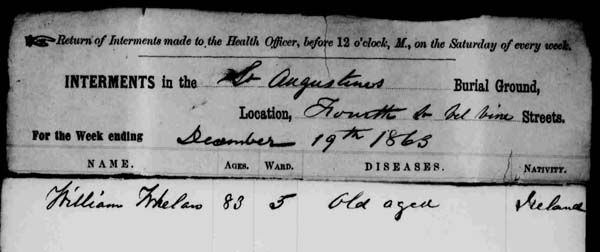 Return of Interments made to the Health Officer, before 12 o'clock, M., on the Saturday of every week.
INTERMENTS in the St Augustines Burial Ground,
Location, Fourth bel Vine Streets.
For the Week ending December 19th 1863
NAME. AGES. WARD. DISEASES. NATIVITY.
William Whelan 83 5 Old aged Ireland